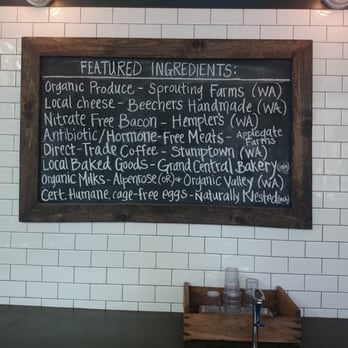 FEATURED INGREDIENTS:
Organic Produce - Sprouting Farms (WA)
Local cheese - Beechers Handmade (WA)
Nitrate Free Bacon - Hempler's (WA)
Antibiotic/Hormone-Free Meats - Applegate Farms
Direct-Trade Coffee - Stumptown (WA)
Local Baked Goods - Grand Central Bakery (WA)
Organic Milks - Alpenrose (OR) + Organic Valley (WA)
Cert. Humane, cage-free eggs - Naturally Nested (WA)